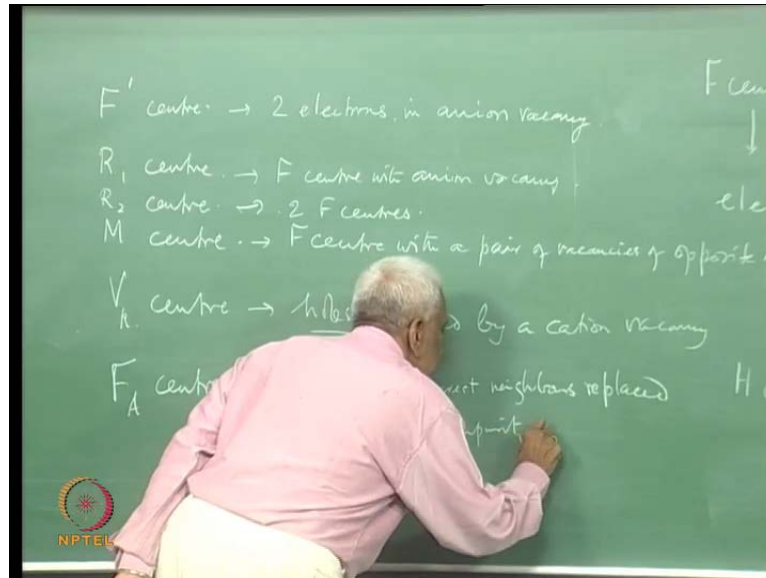 F' centre. → 2 electrons, in anion vacancy.
R₁ centre. → F centre with anion vacancy.
R₂ centre. → 2 F centres.
M centre. → F centre with a pair of vacancies of opposite
Vₖ centre → holes by a cation vacancy
F_A neighbours replaced
F cen
↓
ele
H
NPTEL